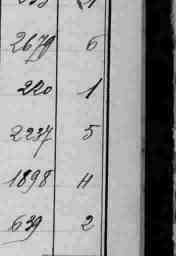 2679 6
220 1
2237 5
1898 4
639 2